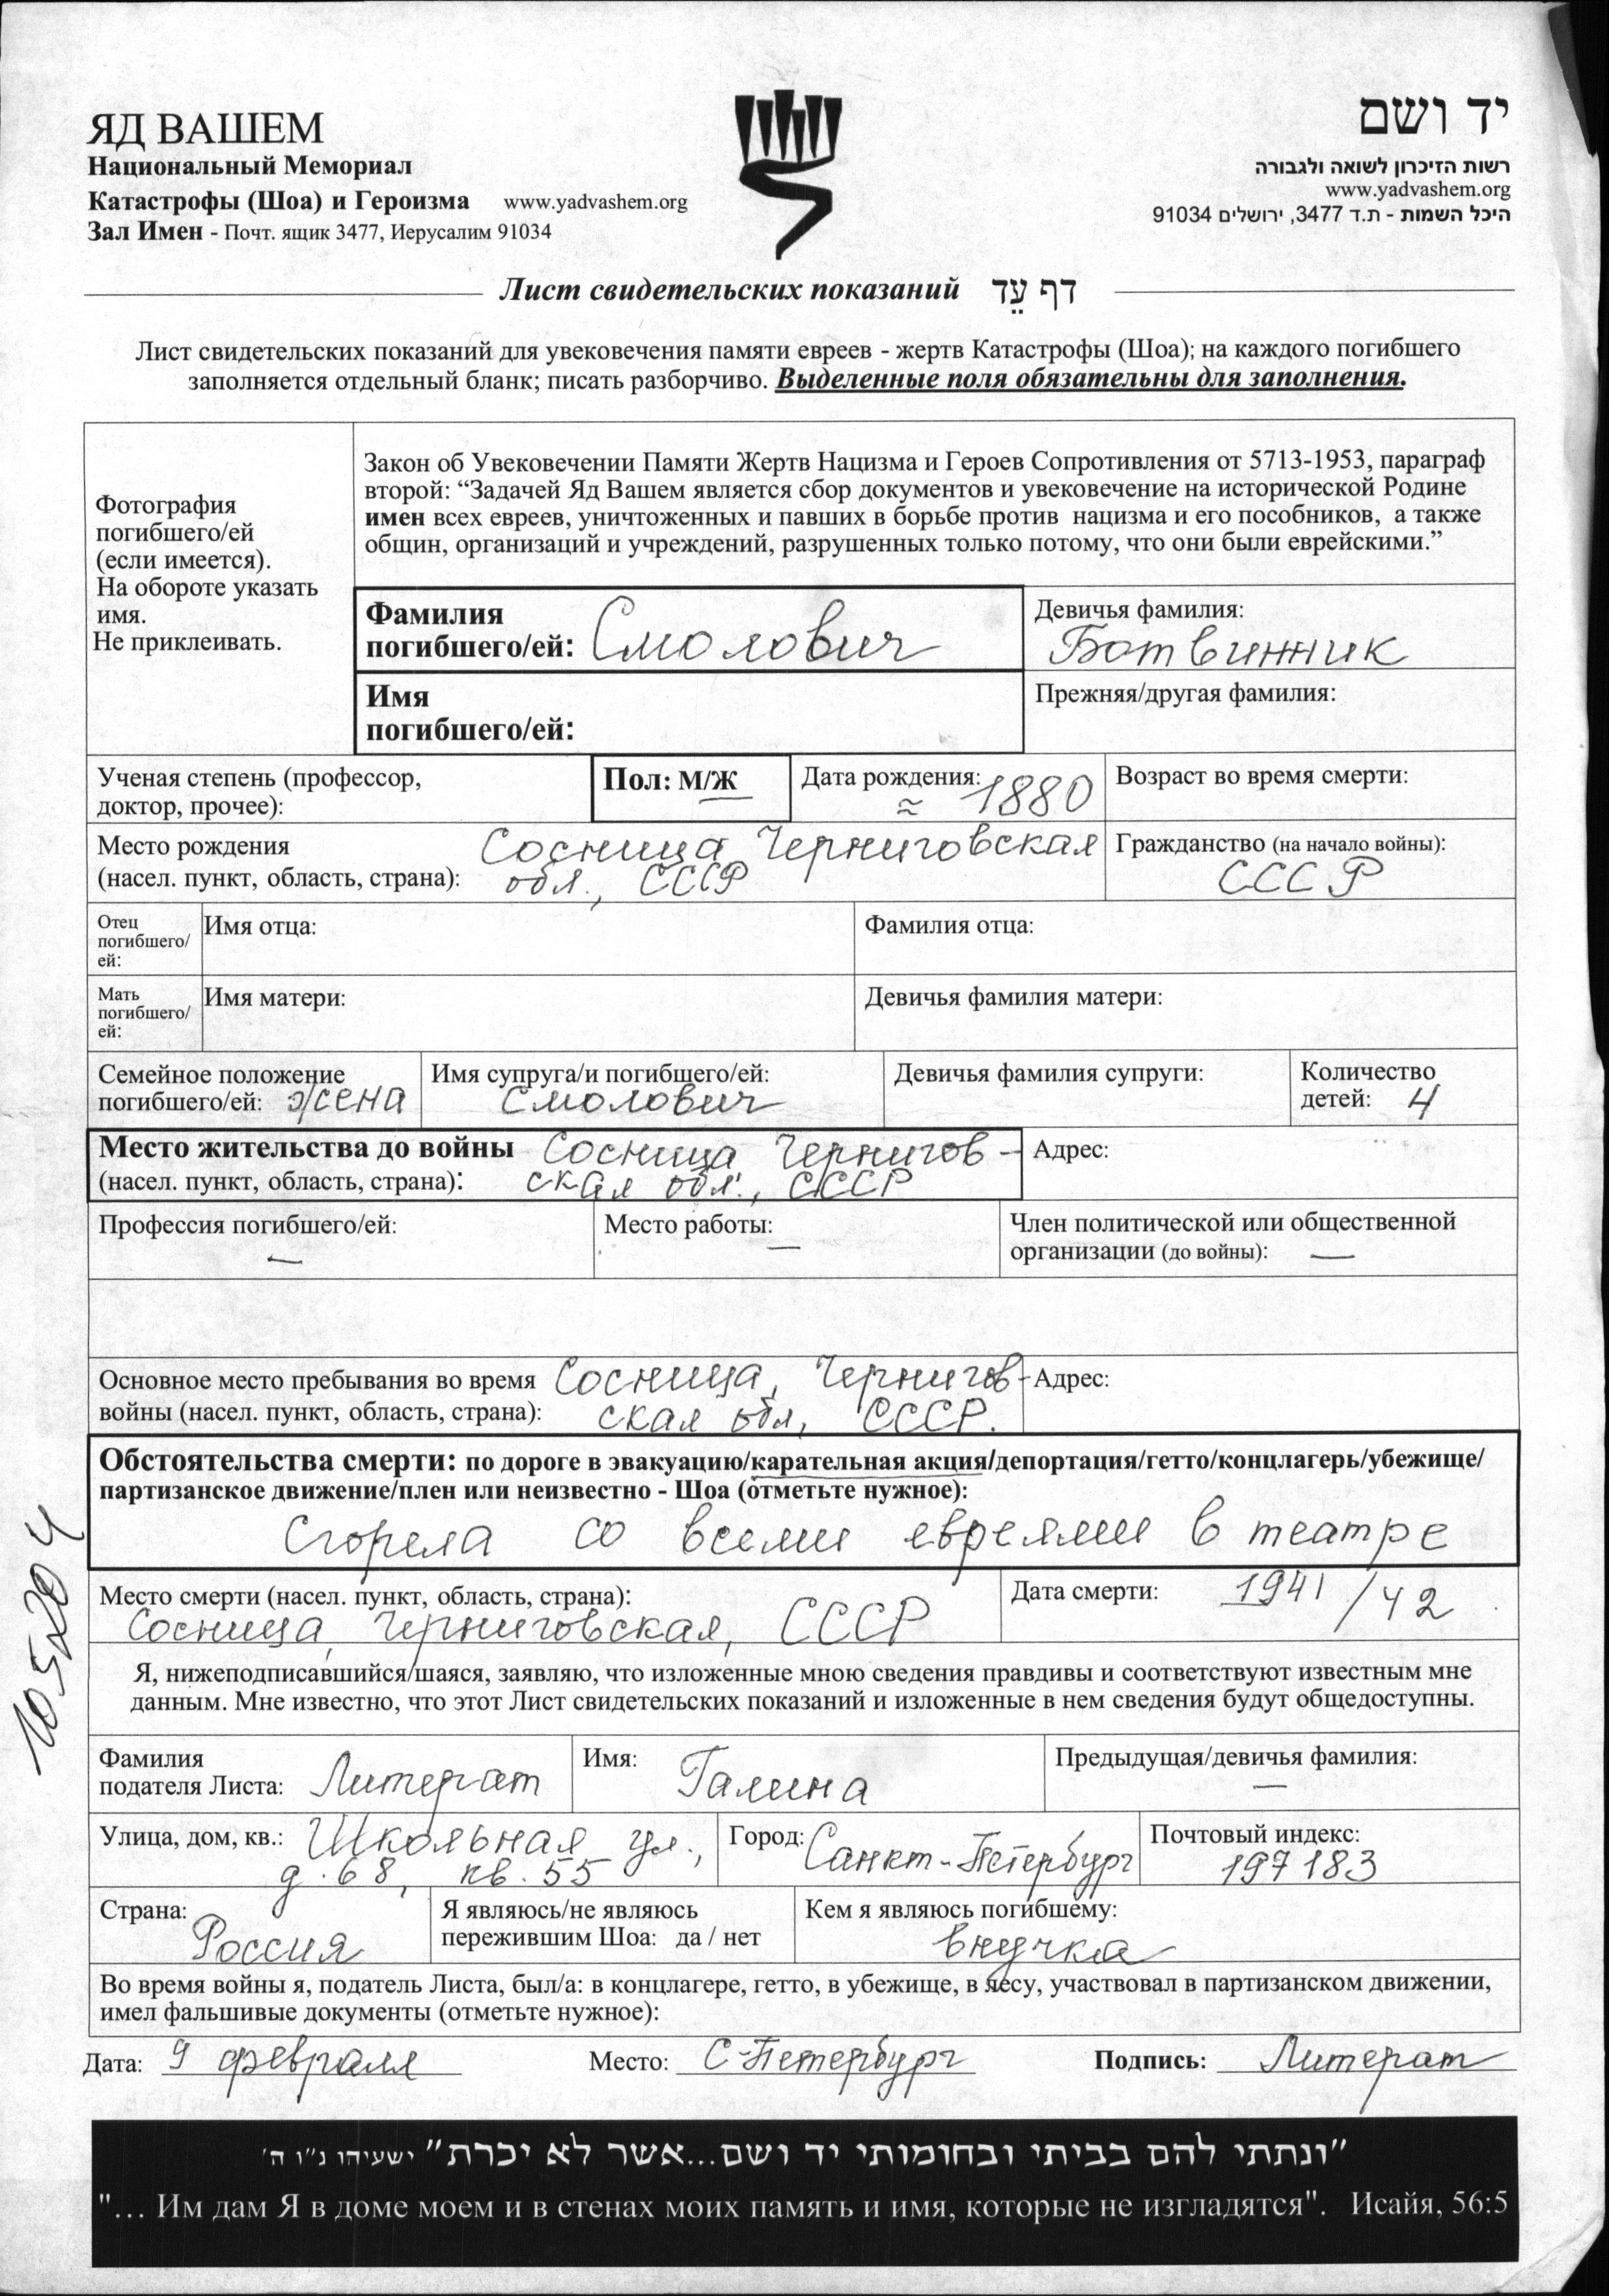 ЯД ВАШЕМ
Национальный Мемориал
Катастрофы (Шоа) и Героизма www.yadvashem.org
Зал Имен - Почт. ящик 3477, Иерусалим 91034
יד ושם
רשות הזיכרון לשואה ולגבורה
www.yadvashem.org
היכל השמות - ת.ד 3477, ירושלים 91034
Лист свидетельских показаний דף עֵד
Лист свидетельских показаний для увековечения памяти евреев - жертв Катастрофы (Шоа); на каждого погибшего
заполняется отдельный бланк; писать разборчиво. Выделенные поля обязательны для заполнения.
Фотография
погибшего/ей
(если имеется).
На обороте указать
имя.
Не приклеивать.
Закон об Увековечении Памяти Жертв Нацизма и Героев Сопротивления от 5713-1953, параграф
второй: “Задачей Яд Вашем является сбор документов и увековечение на исторической Родине
имен всех евреев, уничтоженных и павших в борьбе против нацизма и его пособников, а также
общин, организаций и учреждений, разрушенных только потому, что они были еврейскими.”
Фамилия
погибшего/ей: Смолович
Девичья фамилия:
Ботвинник
Имя
погибшего/ей:
Прежняя/другая фамилия:
Ученая степень (профессор,
доктор, прочее):
Пол: М/Ж
Дата рождения:
≈ 1880
Возраст во время смерти:
Место рождения Сосница, Черниговская
(насел. пункт, область, страна): обл., СССР
Гражданство (на начало войны):
СССР
Отец
погибшего/
ей:
Имя отца:
Фамилия отца:
Мать
погибшего/
ей:
Имя матери:
Девичья фамилия матери:
Семейное положение
погибшего/ей: жена
Имя супруга/и погибшего/ей:
Смолович
Девичья фамилия супруги:
Количество
детей: 4
Место жительства до войны Сосница Чернигов-
(насел. пункт, область, страна): ская обл., СССР
Адрес:
Профессия погибшего/ей:
—
Место работы:
—
Член политической или общественной
организации (до войны): —
Основное место пребывания во время Сосница, Чернигов-
войны (насел. пункт, область, страна): ская обл, СССР.
Адрес:
Обстоятельства смерти: по дороге в эвакуацию/карательная акция/депортация/гетто/концлагерь/убежище/
партизанское движение/плен или неизвестно - Шоа (отметьте нужное):
Сгорела со всеми евреями в театре
Место смерти (насел. пункт, область, страна):
Сосница, Черниговская, СССР
Дата смерти: 1941/42
Я, нижеподписавшийся/шаяся, заявляю, что изложенные мною сведения правдивы и соответствуют известным мне
данным. Мне известно, что этот Лист свидетельских показаний и изложенные в нем сведения будут общедоступны.
Фамилия
подателя Листа: Литерат
Имя:
Галина
Предыдущая/девичья фамилия:
—
Улица, дом, кв.: Школьная ул.,
д. 68, кв. 55
Город: Санкт-Петербург
Почтовый индекс:
197183
Страна:
Россия
Я являюсь/не являюсь
пережившим Шоа: да / нет
Кем я являюсь погибшему:
внучка
Во время войны я, податель Листа, был/а: в концлагере, гетто, в убежище, в лесу, участвовал в партизанском движении,
имел фальшивые документы (отметьте нужное):
Дата: 9 февраля Место: С-Петербург Подпись: Литерат
"ונתתי להם בביתי ובחומותי יד ושם...אשר לא יכרת" ישעיהו נ"ו ה'
"… Им дам Я в доме моем и в стенах моих память и имя, которые не изгладятся". Исайя, 56:5